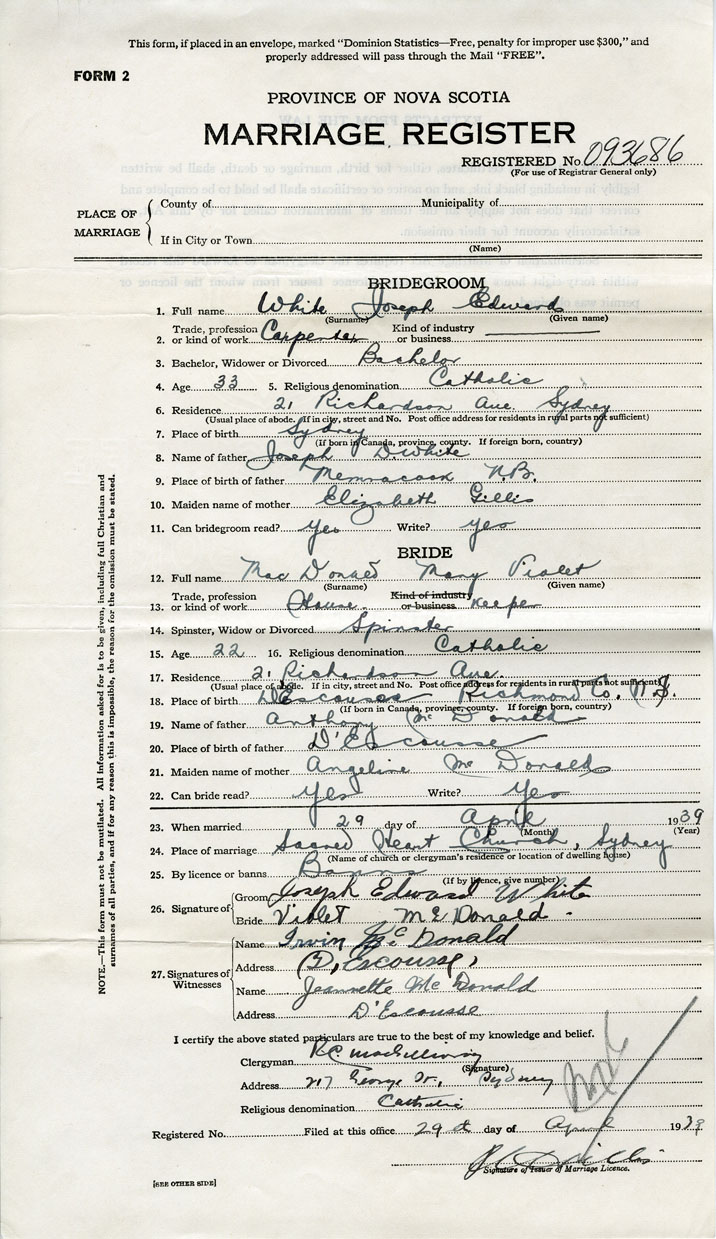 This form, if placed in an envelope, marked "Dominion Statistics—Free, penalty for improper use $300," and
properly addressed will pass through the Mail "FREE".
FORM 2
PROVINCE OF NOVA SCOTIA
MARRIAGE REGISTER
REGISTERED No. 093686
(For use of Registrar General only)
PLACE OF MARRIAGE
County of Municipality of
If in City or Town
(Name)
BRIDEGROOM
1. Full name White Joseph Edward
(Surname) (Given name)
2. Trade, profession or kind of work Carpenter Kind of industry or business
3. Bachelor, Widower or Divorced Bachelor
4. Age 33 5. Religious denomination Catholic
6. Residence 21 Richardson Ave. Sydney
(Usual place of abode. If in city, street and No. Post office address for residents in rural parts not sufficient)
7. Place of birth Sydney
(If born in Canada, province, county. If foreign born, country)
8. Name of father Joseph D White
9. Place of birth of father Memracook N.B.
10. Maiden name of mother Elizabeth Gillis
11. Can bridegroom read? yes Write? yes
BRIDE
12. Full name Mac Donald Mary Violet
(Surname) (Given name)
13. Trade, profession or kind of work House Kind of industry or business Keeper
14. Spinster, Widow or Divorced Spinster
15. Age 22 16. Religious denomination Catholic
17. Residence 21 Richardson Ave.
(Usual place of abode. If in city, street and No. Post office address for residents in rural parts not sufficient)
18. Place of birth D'Escousse Richmond Co. N.S.
(If born in Canada, province, county. If foreign born, country)
19. Name of father Anthony Mc Donald
20. Place of birth of father D'Escousse
21. Maiden name of mother Angeline Mc Donald
22. Can bride read? Yes Write? Yes
23. When married 29 day of April 1939
(Month) (Year)
24. Place of marriage Sacred Heart Church, Sydney
(Name of church or clergyman's residence or location of dwelling house)
25. By licence or banns Banns
(If by licence, give number)
26. Signature of
Groom Joseph Edward White
Bride Violet McDonald.
27. Signatures of Witnesses
Name Irvin McDonald
Address (D, Escousse,
Name Jeannette McDonald
Address D'Escousse
I certify the above stated particulars are true to the best of my knowledge and belief.
Clergyman R.C. MacGillivray
(Signature)
Address 217 George St., Sydney
Religious denomination Catholic
Registered No. Filed at this office 29th day of April 1939
Signature of Issuer of Marriage Licence.
[SEE OTHER SIDE]
NOTE.—This form must not be mutilated. All information asked for is to be given, including full Christian and
surnames of all parties, and if for any reason this is impossible, the reason for the omission must be stated.